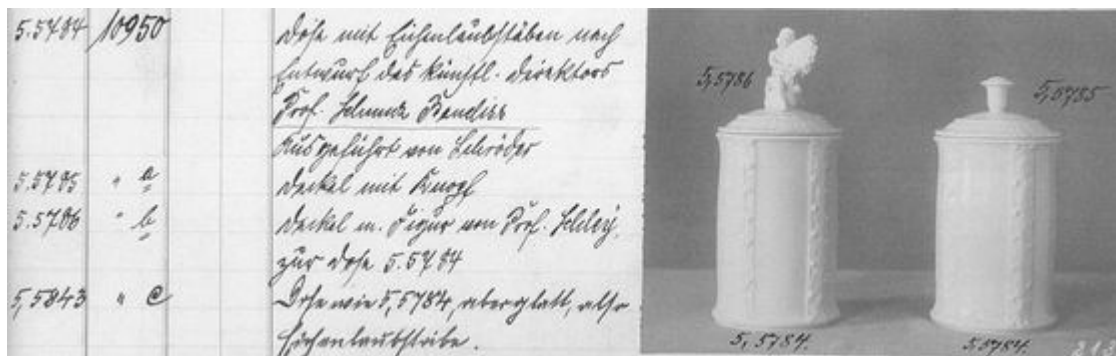 5.5784 10950 Dose mit Eichenlaubstäben nach
Entwurf des künstl. Direktors
Prof. Schmuz Baudiss
Ausgeführt von Schröder
5.5785 " a Deckel mit Knopf
5.5786 " b Deckel m. Figur von Prof. Schley,
zur Dose 5.5784
5,5843 " c Dose wie 5,5784, aber glatt, ohne
Eichenlaubstäbe.
5,5786
5,5785
5,5784.
5,5784.